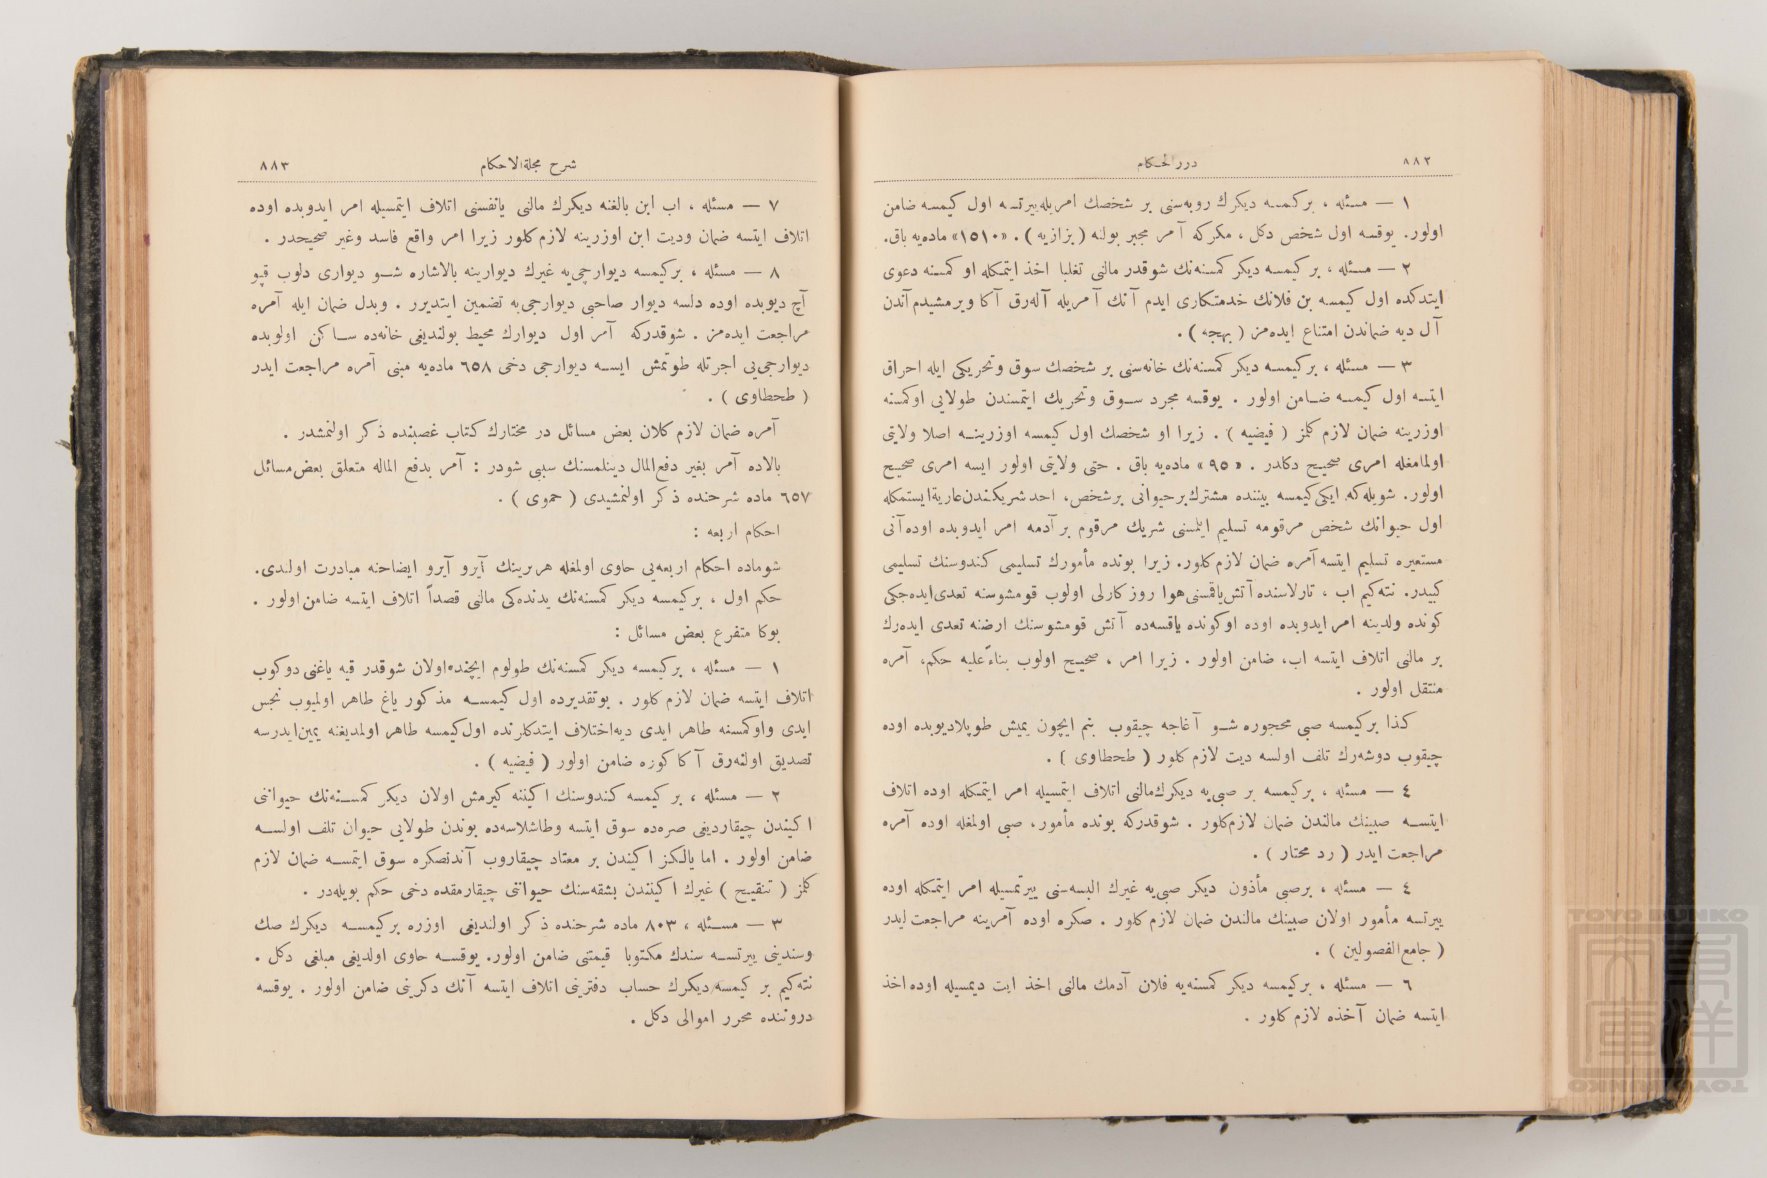 ٨٨٢
دررالحكام
١ — مسئله ، بركيمسه ديكرك روبه‌سنى بر شخصك امريله ييرتسه اول كيمسه ضامن
اولور. يوقسه اول شخص دكل ، مكركه آمر مجبر بولنه ( بزازيه ) . «١٥١٠» ماده‌يه باق.
٢ — مسئله ، بر كيمسه ديكر كمسنه‌نك شوقدر مالنى تغلبا اخذ ايتمكله او كمسنه دعوى
ايتدكده اول كيمسه بن فلانك خدمتكارى ايدم آنك آمريله آله‌رق آكا ويرمشيدم آندن
آل ديه ضماندن امتناع ايده‌مز ( بهجه ) .
٣ — مسئله ، بركيمسه ديكر كمسنه‌نك خانه‌سنى بر شخصك سوق وتحريكى ايله احراق
ايتسه اول كيمسه ضامن اولور . يوقسه مجرد سوق وتحريك ايتمسندن طولايى اوكمسنه
اوزرينه ضمان لازم كلمز ( فيضيه ) . زيرا او شخصك اول كيمسه اوزرينه اصلا ولايتى
اولمامغله امرى صحيح دكلدر . « ٩٥ » ماده‌يه باق . حتى ولايتى اولور ايسه امرى صحيح
اولور. شويله‌كه ايكى كيمسه بيننده مشترك برحيوانى برشخص، احد شريكندن عارية ايستمكله
اول حيوانك شخص مرقومه تسليم ايلمسنى شريك مرقوم بر آدمه امر ايدوبده اوده آنى
مستعيره تسليم ايتسه آمره ضمان لازم كلور. زيرا بونده مأمورك تسليمى كندوسنك تسليمى
كبيدر. نته‌كيم اب ، تارلاسنده آتش ياقمسنى هوا روزكارلى اولوب قومشوسنه تعدى ايده‌جكى
كونده ولدينه امر ايدوبده اوده اوكونده ياقسه‌ده آتش قومشوسنك ارضنه تعدى ايده‌رك
بر مالنى اتلاف ايتسه اب، ضامن اولور . زيرا امر ، صحيح اولوب بناءً عليه حكم، آمره
منتقل اولور .
كذا بركيمسه صبى محجوره شو آغاجه چيقوب بنم ايچون يميش طوپلا ديوبده اوده
چيقوب دوشه‌رك تلف اولسه ديت لازم كلور ( طحطاوى ) .
٤ — مسئله ، بركيمسه بر صبى‌يه ديكرك مالنى اتلاف ايتمسيله امر ايتمكله اوده اتلاف
ايتسه صبينك مالندن ضمان لازم كلور . شوقدركه بونده مأمور، صبى اولمغله اوده آمره
مراجعت ايدر ( رد محتار ) .
٤ — مسئله ، برصبى مأذون ديكر صبى‌يه غيرك البسه‌سنى ييرتمسيله امر ايتمكله اوده
ييرتسه مأمور اولان صبينك مالندن ضمان لازم كلور . صكره اوده آمرينه مراجعت ايدر
( جامع الفصولين ) .
٦ — مسئله ، بركيمسه ديكر كمسنه‌يه فلان آدمك مالنى اخذ ايت ديمسيله اوده اخذ
ايتسه ضمان آخذه لازم كلور .
شرح مجلة الاحكام
٨٨٣
٧ — مسئله ، اب ابن بالغنه ديكرك مالنى ياتفسنى اتلاف ايتمسيله امر ايدوبده اوده
اتلاف ايتسه ضمان وديت ابن اوزرينه لازم كلور زيرا امر واقع فاسد وغير صحيحدر .
٨ — مسئله ، بركيمسه ديوارجى‌يه غيرك ديوارينه بالاشاره شو ديوارى دلوب قپو
آچ ديوبده اوده دلسه ديوار صاحبى ديوارجى‌يه تضمين ايتديرر . وبدل ضمان ايله آمره
مراجعت ايده‌مز . شوقدركه آمر اول ديوارك محيط بولنديغى خانه‌ده ساكن اولوبده
ديوارجى‌يى اجرتله طوتمش ايسه ديوارجى دخى ٦٥٨ ماده‌يه مبنى آمره مراجعت ايدر
( طحطاوى ) .
آمره ضمان لازم كلان بعض مسائل در مختارك كتاب غصبنده ذكر اولنمشدر .
بالاده آمر بغير دفع المال دينلمسنك سببى شودر : آمر بدفع الماله متعلق بعض مسائل
٦٥٧ ماده شرحنده ذكر اولنمشيدى ( حموى ) .
احكام اربعه :
شوماده احكام اربعه‌يى حاوى اولمغله هربرينك آيرو آيرو ايضاحنه مبادرت اولندى.
حكم اول ، بركيمسه ديكر كمسنه‌نك يدنده‌كى مالنى قصداً اتلاف ايتسه ضامن اولور .
بوكا متفرع بعض مسائل :
١ — مسئله ، بركيمسه ديكر كمسنه‌نك طولوم ايچنده اولان شوقدر قيه ياغنى دوكوب
اتلاف ايتسه ضمان لازم كلور . بوتقديرده اول كيمسه مذكور ياغ طاهر اولميوب نجس
ايدى واوكمسنه طاهر ايدى ديه اختلاف ايتدكلرنده اول كيمسه طاهر اولمديغنه يمين ايدرسه
تصديق اولنه‌رق آكا كوره ضامن اولور ( فيضيه ) .
٢ — مسئله ، بر كيمسه كندوسنك اكيننه كيرمش اولان ديكر كمسنه‌نك حيواننى
اكيندن چيقارديغى صره‌ده سوق ايتسه وطاشلاسه‌ده بوندن طولايى حيوان تلف اولسه
ضامن اولور . اما يالكز اكيندن بر معتاد چيقاروب آندنصكره سوق ايتمسه ضمان لازم
كلمز ( تنقيح ) غيرك اكينندن بشقه‌سنك حيواننى چيقارمقده دخى حكم بويله‌در .
٣ — مسئله ، ٨٠٣ ماده شرحنده ذكر اولنديغى اوزره بركيمسه ديكرك صك
وسندينى ييرتسه سندك مكتوبا قيمتنى ضامن اولور. يوقسه حاوى اولديغى مبلغى دكل .
نته‌كيم بر كيمسه ديكرك حساب دفترينى اتلاف ايتسه آنك دكرينى ضامن اولور . يوقسه
دروننده محرر اموالى دكل .
TOYO BUNKO
東洋文庫
TOYO BUNKO